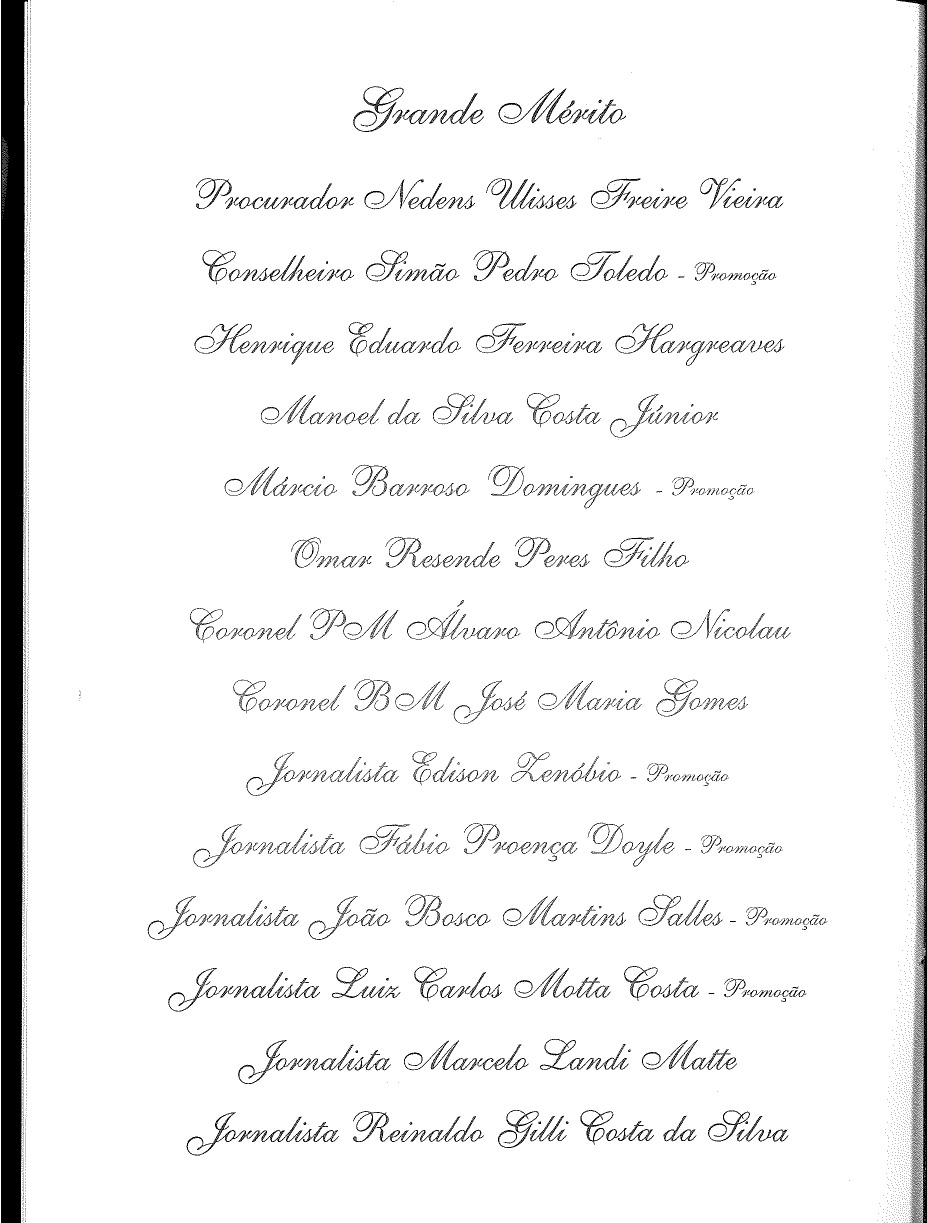 Grande Mérito
Procurador Nedens Ulisses Freire Vieira
Conselheiro Simão Pedro Toledo - Promoção
Henrique Eduardo Ferreira Hargreaves
Manoel da Silva Costa Júnior
Márcio Barroso Domingues - Promoção
Omar Resende Peres Filho
Coronel PM Álvaro Antônio Nicolau
Coronel BM José Maria Gomes
Jornalista Edison Zenóbio - Promoção
Jornalista Fábio Proença Doyle - Promoção
Jornalista João Bosco Martins Salles - Promoção
Jornalista Luiz Carlos Motta Costa - Promoção
Jornalista Marcelo Landi Matte
Jornalista Reinaldo Gilli Costa da Silva